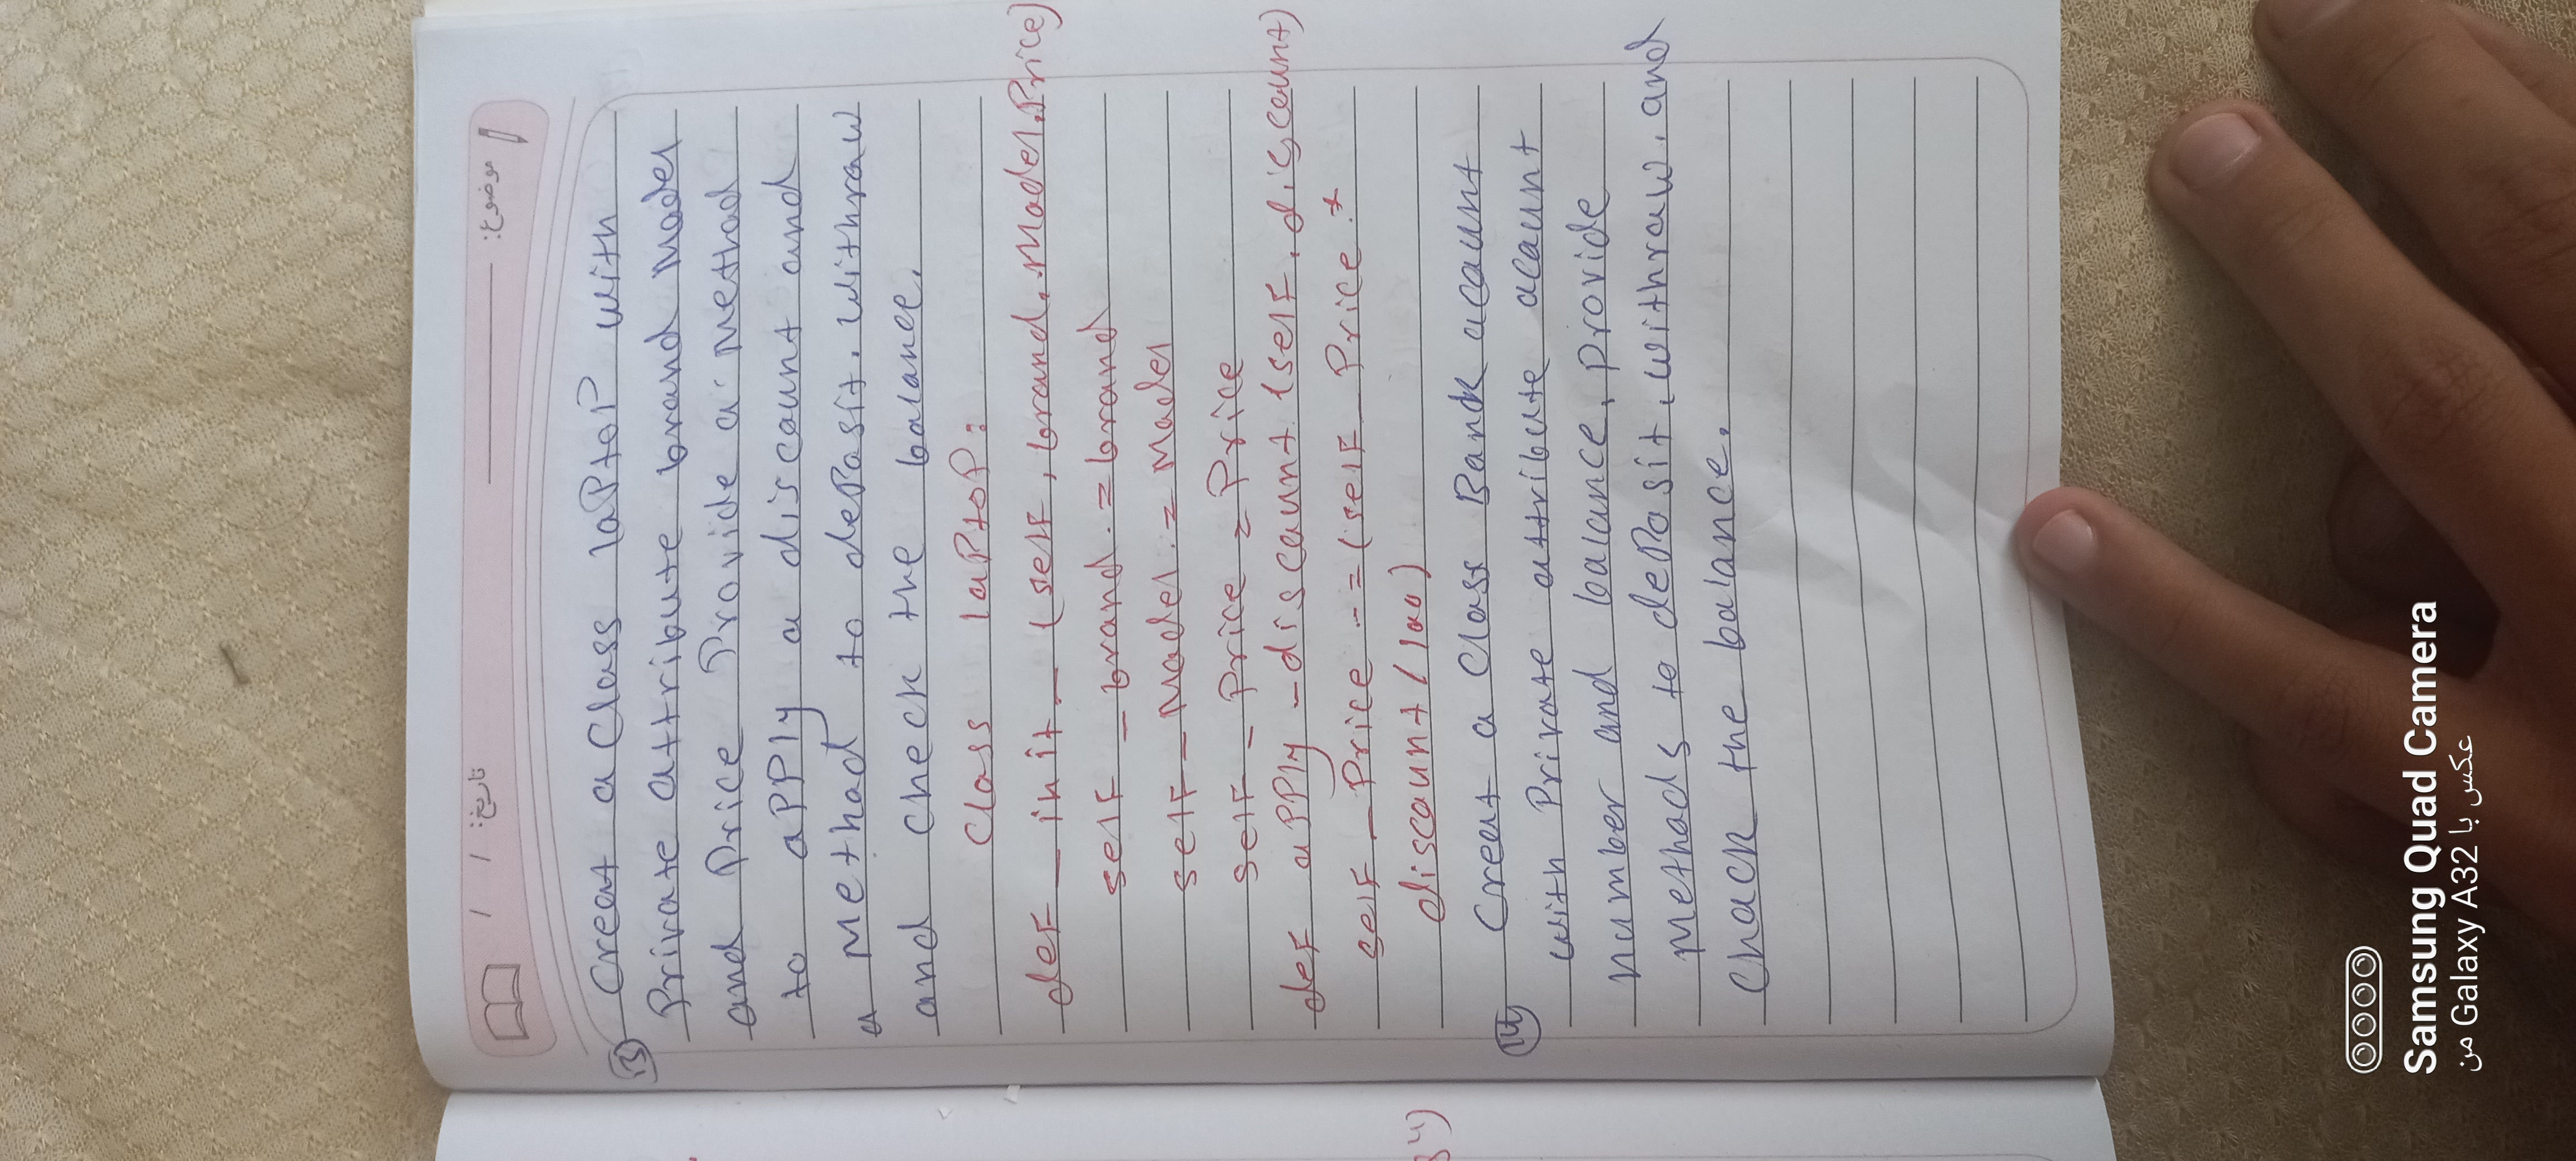 موضوع:
تاریخ: / /
13 Creat a Class laptop with
Private attribute brand Model
and Price Provide a Method
to apply a discount and
a Method to deposit. withraw
and check the balance.
Class laptop:
def _init_ (self, brand, Model, Price)
self _ brand . = brand
self _ Model . = Model
self _ Price = Price
def apply _discount (self, discount)
self _ Price - = (self _ Price *
discount / 100)
14 Creat a Class Bank acount
with Private attribute acount
number and balance, provide
Methods to deposit, withraw, and
chack the balance.
84)
Samsung Quad Camera
عکس با Galaxy A32 من